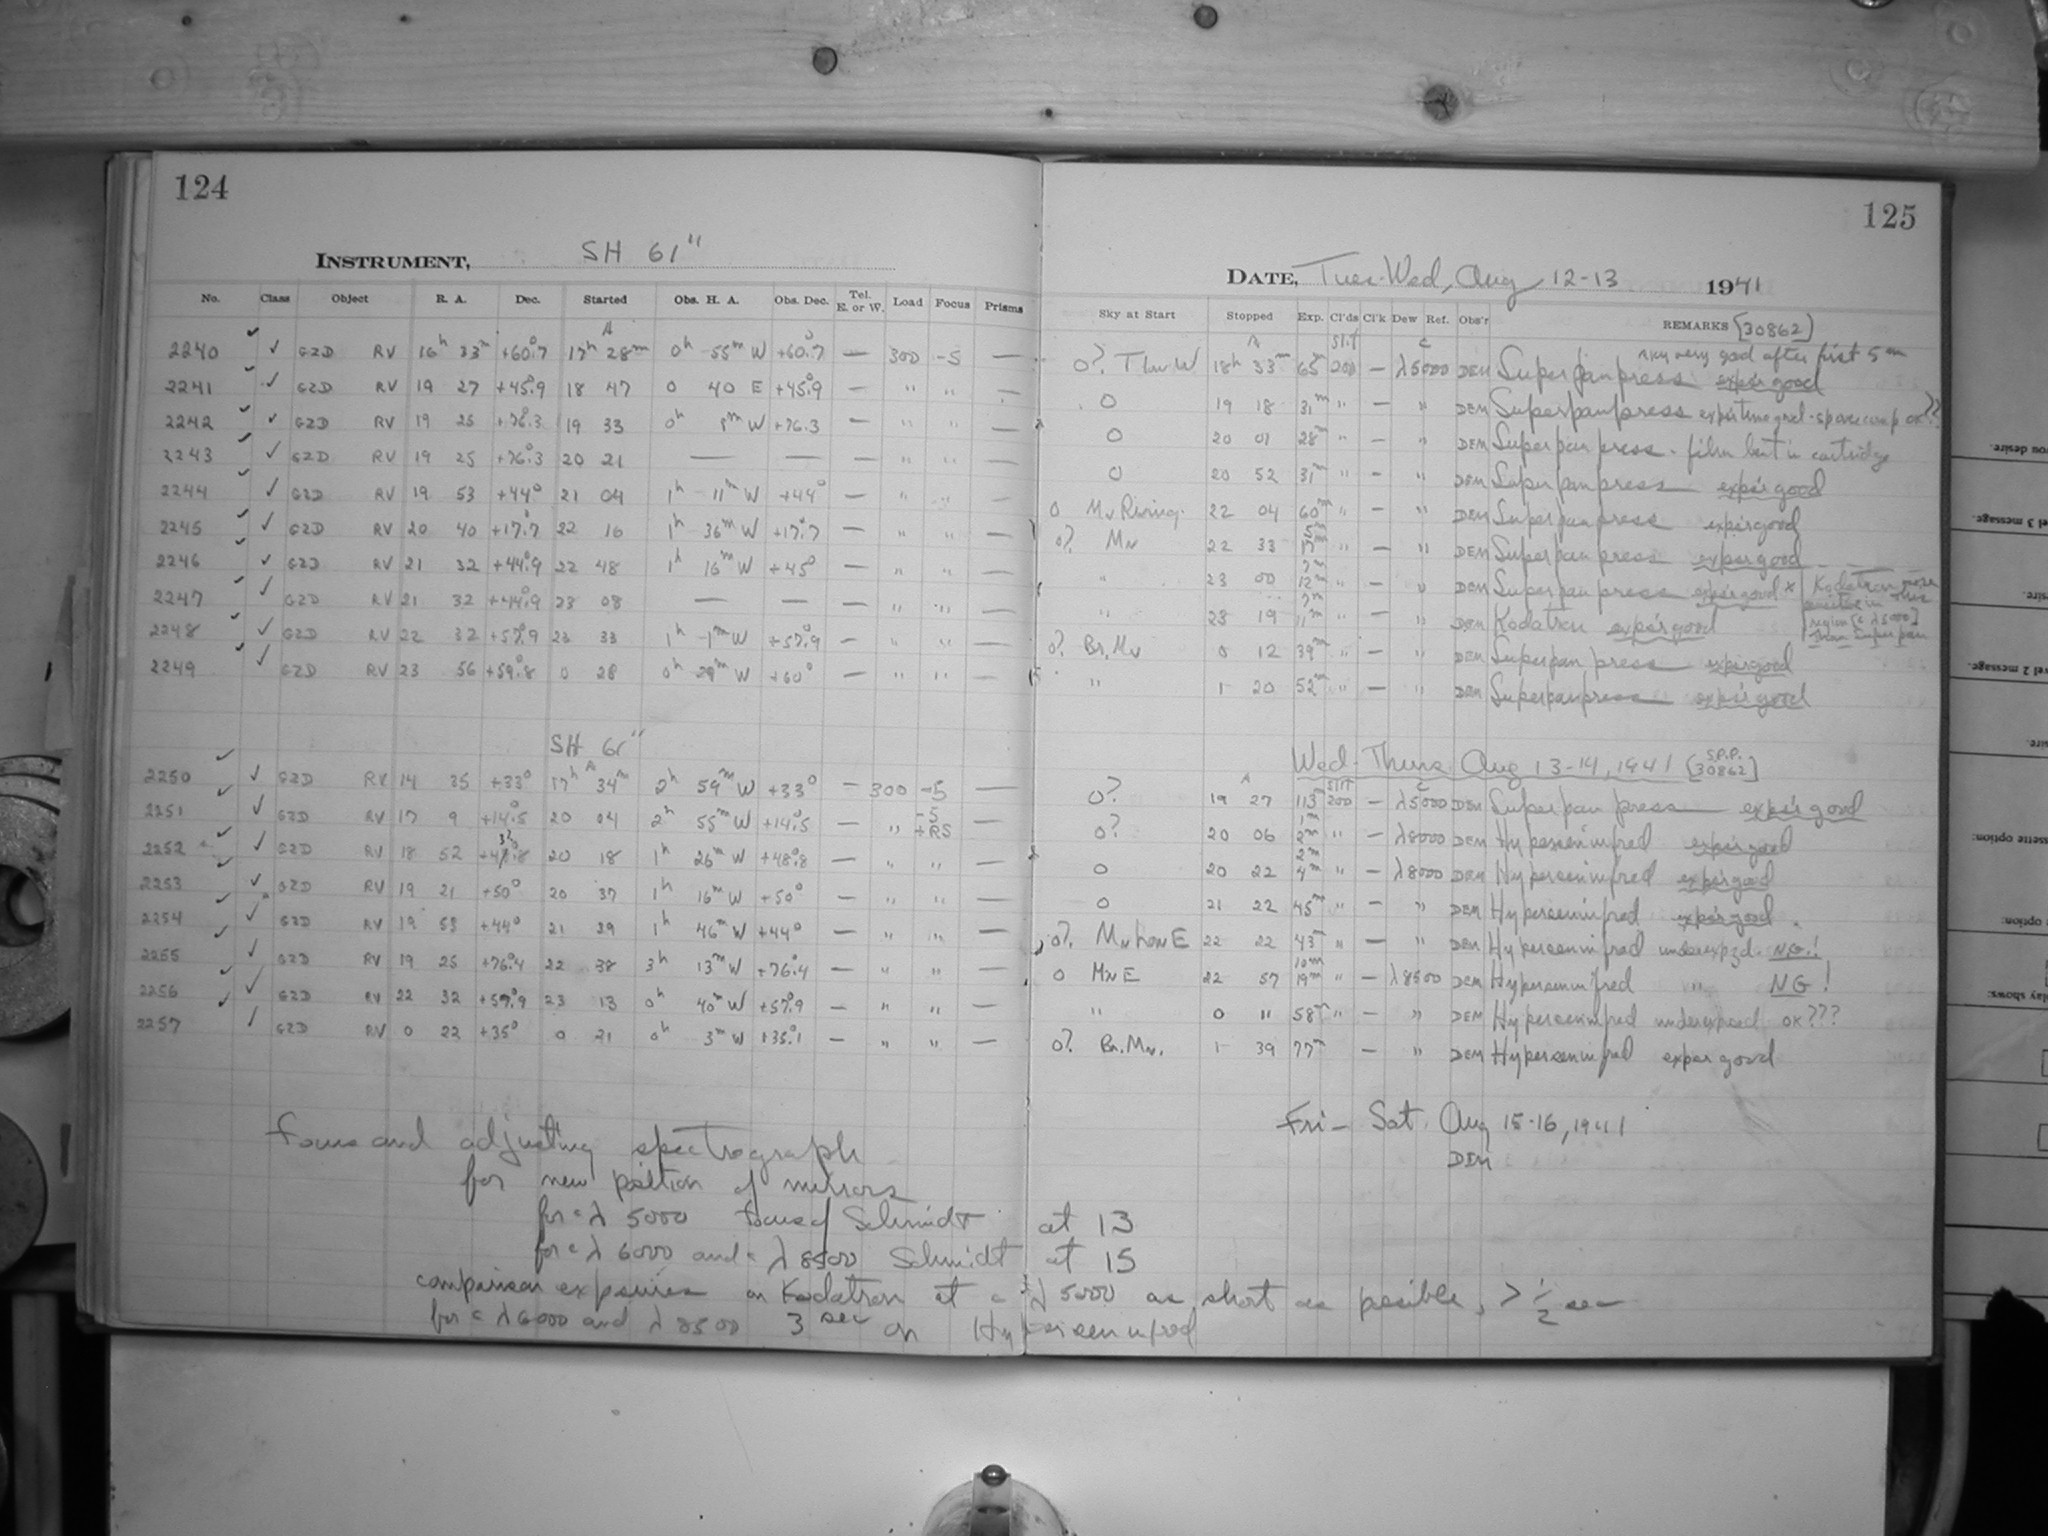 124
INSTRUMENT, SH 61"
No. Class Object R. A. Dec. Started Obs. H. A. Obs. Dec. Tel. E. or W. Load Focus Prisms
2240 ✓ GZD RV 16h 33m +60°.7 17h 28m 0h 55m W +60°.7 — 300 -5
2241 ✓ GZD RV 19 27 +45°.9 18 47 0 40 E +45°.9 — " "
2242 ✓ GZD RV 19 25 +76°.3 19 33 0h m W +76.3 — " " —
2243 ✓ GZD RV 19 25 +76°.3 20 21 — — — " " —
2244 ✓ GZD RV 19 53 +44° 21 04 1h 11m W +44° — " " —
2245 ✓ GZD RV 20 40 +17°.7 22 16 1h 36m W +17°.7 — " " —
2246 ✓ GZD RV 21 32 +44°.9 22 48 1h 16m W +45° — " " —
2247 ✓ GZD RV 21 32 +44°.9 23 08 — — — " " —
2248 ✓ GZD RV 22 32 +57°.9 23 33 1h 1m W +57°.9 — " " —
2249 ✓ GZD RV 23 56 +59°.8 0 28 0h 29m W +60° — " " —
SH 61"
2250 ✓ GZD RV 14 35 +33° 17h 34m 2h 59m W +33° — 300 -5
2251 ✓ GZD RV 17 9 +14°.5 20 04 2h 55m W +14°.5 — " -5 +RS —
2252 ✓ GZD RV 18 52 20 18 1h 26m W +48°.8 — " " —
2253 ✓ GZD RV 19 21 +50° 20 37 1h 16m W +50° — " " —
2254 ✓ GZD RV 19 53 +44° 21 39 1h 46m W +44° — " " —
2255 ✓ GZD RV 19 25 +76°.4 22 38 3h 13m W +76°.4 — " " —
2256 ✓ GZD RV 22 32 +57°.9 23 13 0h 40m W +57°.9 — " " —
2257 ✓ GZD RV 0 22 +35° 0 21 0h 3m W +35.1 — " " —
Focus and adjusting spectrograph
for new position of mirrors
for c λ 5000 focus of Schmidt at 13
for c λ 6000 and c λ 8500 Schmidt at 15
comparison exposures on Kodatron at c λ 5000 as short as posible, > 1/2 sec
for c λ 6000 and λ 8500 3 sec on Hyperseninfred
125
DATE, Tues-Wed, Aug 12-13 1941
Sky at Start Stopped Exp. Cl'ds Cl'k Dew Ref. Obs'r REMARKS [30862]
sky very good after first 5m
0? Thru W 18h 33m 65m 200 — λ5000 DEM Superpanpress exp'r good
0 19 18 31m " — " DEM Superpanpress
0 20 01 28m " — " DEM Superpan press - film bent in cartridge
0 20 52 31m " — " DEM Superpan press exp'r good
0 Mn Rising 22 04 60m " — " DEM Superpan press exp'r good
0? Mn 22 33 17m 5m " — " DEM Superpan press exp'r good
" 23 00 12m 7m " — " DEM Superpan press exp'r good * Kodatron more
sensitive in this
region [c λ5000]
than Superpan
" 23 19 11m 7m " — " DEM Kodatron exp'r good
0? Br. Mn 0 12 39m " — " DEM Superpan press exp'r good
" 1 20 52m " — " DEM Superpanpress exp'r good
Wed-Thurs Aug 13-14, 1941 S.P.P. [30862]
0? 19 27 113m 200 — λ5000 DEM Superpan press exp'r good
0? 20 06 2m 1m " — λ8000 DEM Hyperseninfred exp'r good
0 20 22 4m 2m " — λ8000 DEM Hyperseninfred exp'r good
0 21 22 45m " — " DEM Hyperseninfred exp'r good
0? Mn low E 22 22 43m " — " DEM Hyperseninfred underexp'd. N.G.!
0 Mn E 22 57 19m 10m " — λ8500 DEM Hyperseninfred " NG!
" 0 11 58m " — " DEM Hyperseninfred underexposed ok???
0? Br. Mn. 1 39 77m — " DEM Hyperseninfred exp'r good
Fri - Sat. Aug 15-16, 1941
DEM